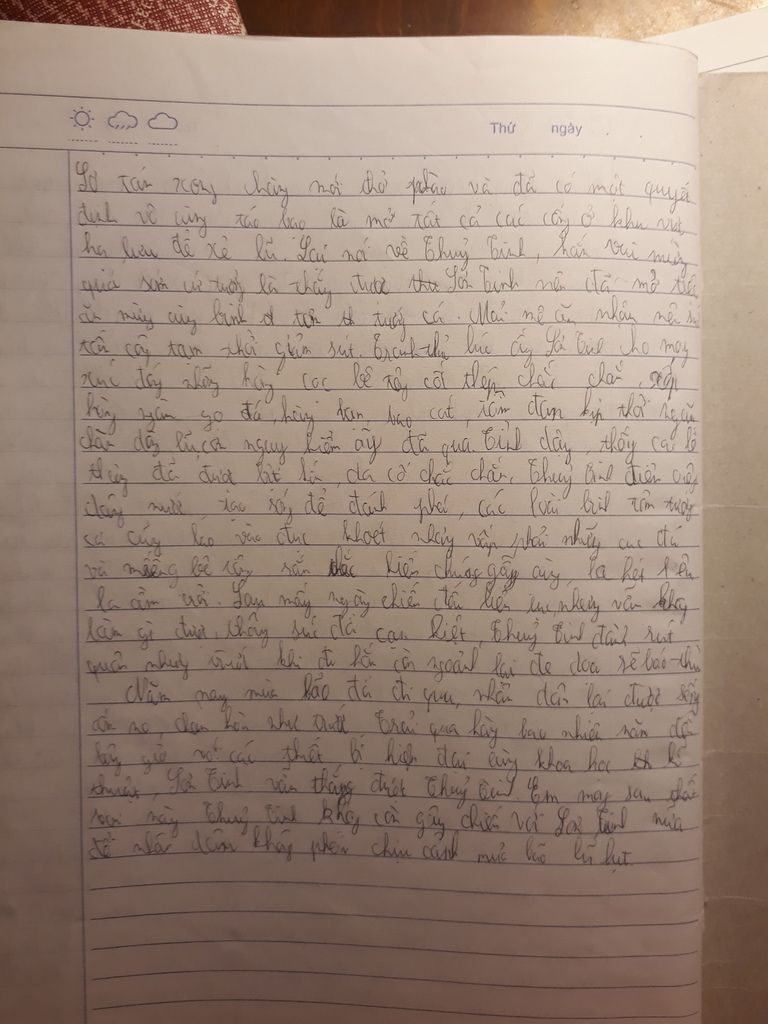 Thứ ngày
Sơ tán xong chàng mới thở phào và đã có một quyết
định vô cùng táo bạo là mở tất cả các cống ở khu vực
hạ lưu để xả lũ. Lại nói về Thuỷ Tinh, hắn vui mừng
quá sớm cứ tưởng là thắng được Sơn Tinh nên đã mở tiệc
ăn mừng cùng binh tôm tướng cá. Mải mê ăn nhậu nên
tấn công tạm thời giảm sút. Tranh thủ lúc ấy Sơn Tinh cho máy
xúc đấy những hàng cọc bê tông cốt thép chắc chắn, xếp
hàng ngàn gỗ đá, hàng bao cát, kịp thời ngăn
chặn dòng lũ, cơn nguy hiểm ấy đã qua. Tỉnh dậy, thấy
thủng đã được bít kín, đã cố chắc chắn, Thuỷ Tinh điên cuồng
dâng nước, tạo sóng để đánh phá, các loài binh tôm tướng
cá cũng lao vào đục khoét nhưng vấp phải những cục đá
và miếng bê tông rắn chắc khiến chúng gãy càng, la hét kêu
la ầm trời. Sau mấy ngày chiến đấu liên tục, nhưng vẫn không
làm gì được, thông sức đã cạn kiệt, Thuỷ Tinh đành rút
quân nhưng trước khi đi hắn còn ngoảnh lại đe doạ sẽ báo thù
Năm nay mùa bão đã đi qua, nhân dân lại được sống
ấm no, đoàn hòa như trước. Trải qua hàng bao nhiêu năm đến
bây giờ với các thiết bị hiện đại cùng khoa học kĩ
thuật, Sơn Tinh vẫn thắng được Thuỷ Tinh. Em mong sau
này Thuỷ Tinh không còn gây chiến với Sơn Tinh nữa
để nhân dân không phải chịu cảnh mưa bão lũ lụt.